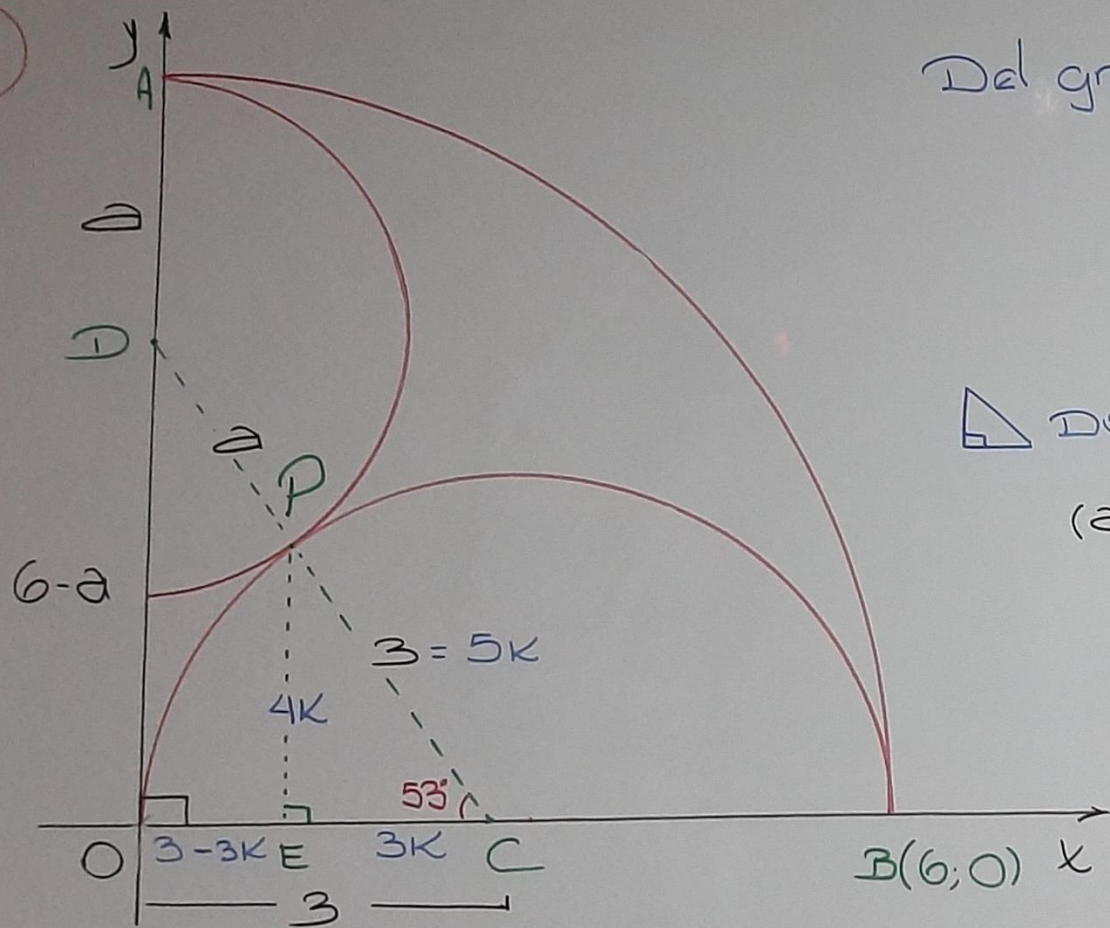 y
A
Del
a
D
a
P
6-a
3 = 5K
4K
53°
O
3-3K
E
3K
C
B(6;0)
x
3